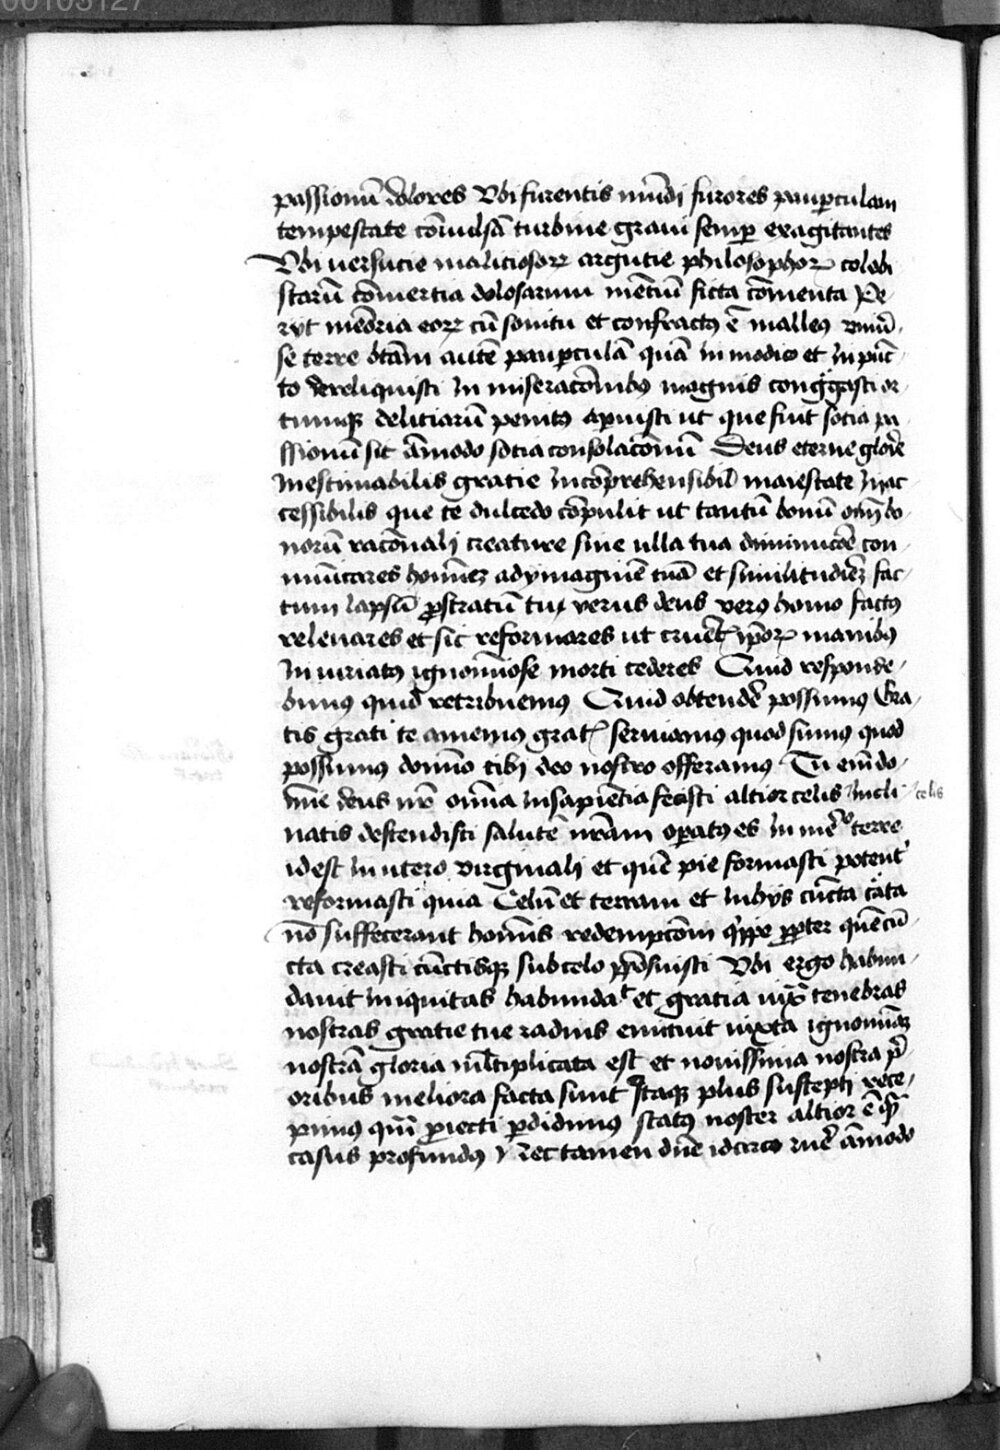 00103127
passionū dolores Vbi furentis mūdi furores paupculam
tempestate cōuulsā turbine graui semp exagitantes
Vbi uersucie maliciosoꝝ argutie philosophoꝝ celebi
starū cōmertia dolosarum mētiū ficta cōmenta Pe
ryt memoria eoꝝ cū sonitu et confractꝰ ē malleꝰ vniū
se terre istam autē paupculā quā in modico et in pūc
to dereliquisti in miseracōnibꝰ magnis congregasti or
tumqꝫ delitiarū penitꝰ apuisti ut que fuit socia pa
ssionū sit āmodo socia consolacōnū Deus eterne glorie
inestimabilis gratie incōprehensibil maiestate inac
cessibilis que te dulcedo cōpulit ut tantū bonū oīm bo
norū racōnali creature sine ulla tua diminucōe con
municares hominez ad ymaginē tuā et similitudinēz fac
tum lapsū ꝓstratū tu verus deus verꝰ homo factꝰ
releuares et sic reformares ut cruēt ipoꝝ manibꝰ
iniuriatꝰ ignominiose morti cederes Quid responde
bimus quid retribuemꝰ Quid obtendē possumus Gra
tis grati te amemus gratis seruiamus quod sumus quod
possumus domino tibi deo nostro offeramus Tu eni do
mine deus nr̄ omnia in sapientia fecisti altior celis incli celis
natis descendisti salutē nr̄am opatꝰ es in meo terre
id est in utero virginali et quē pie formasti potent
reformasti quia Celū et terram et in hijs cūcta cata
nō suffecerant hominis redempcōni q'ppe ppter quē cū
cta creasti cūctisqꝫ sub celo pposuisti Vbi ergo habun
dauit iniquitas habundat et gratia iuxta tenebras
nostras gratie tue radius emicuit iuxta ignominiaz
nostrā gloria multiplicata est et nouissima nostra p
oribus meliora facta sunt Itaqꝫ plus suscepti rece
pimus quā piecti pdidimus status noster altior ē qꝫ
casus profundꝰ nec tamen dn̄e idcirco ruē āmodo